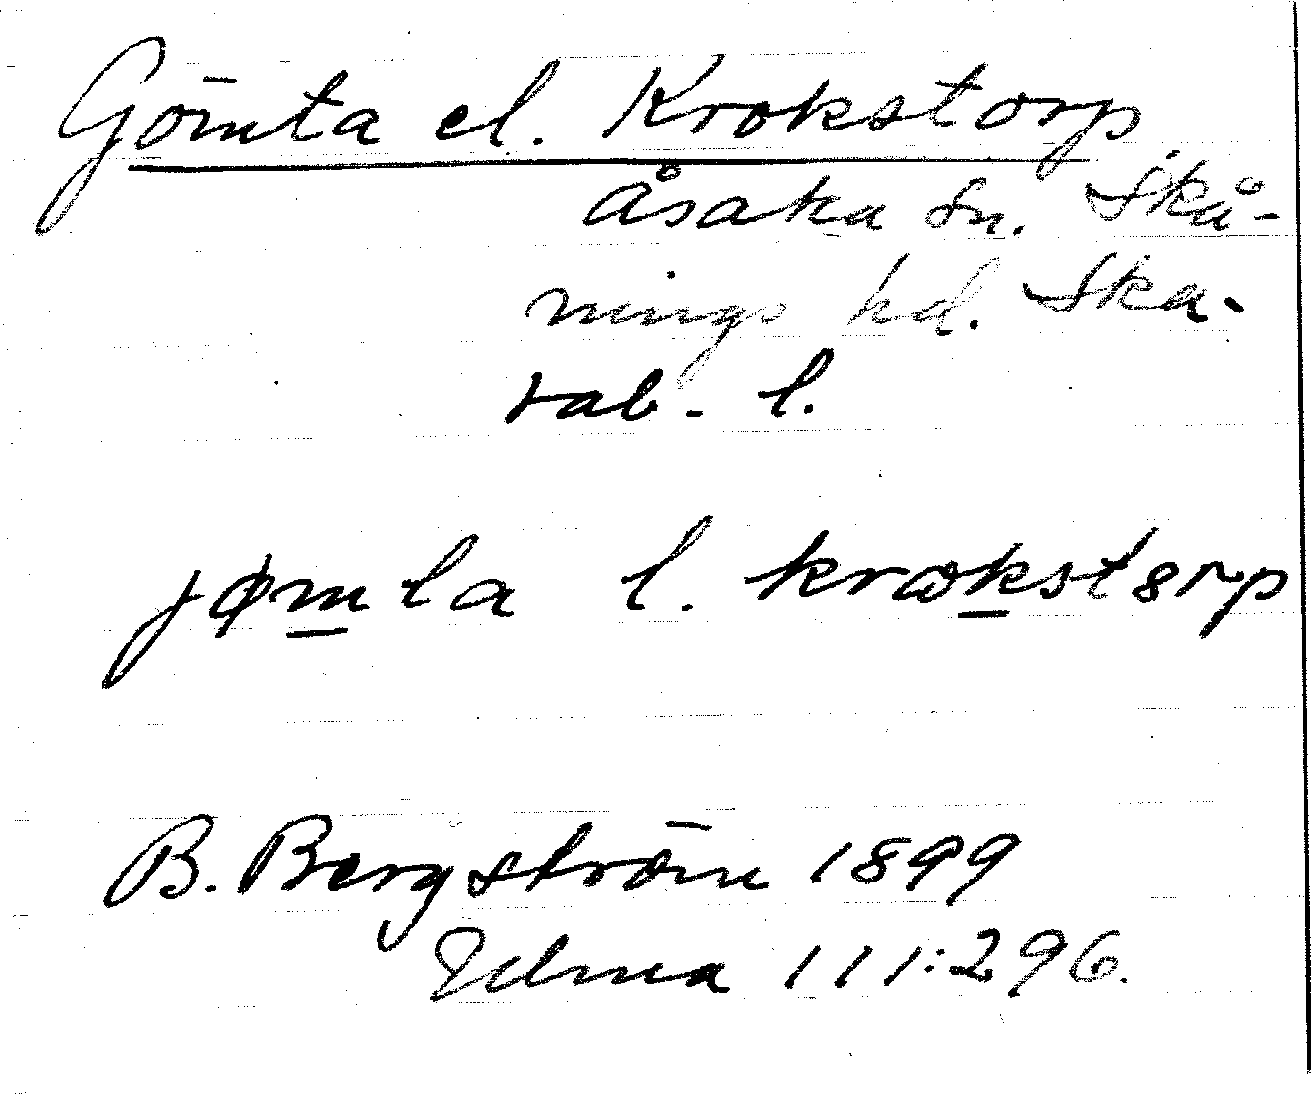 Gömta el. Krokstorp
Åsaka sn. Skå-
nings hd. Ska-
rab. l.
jømta l. krokstorp
B. Bergström 1899
Ulma 111:296.